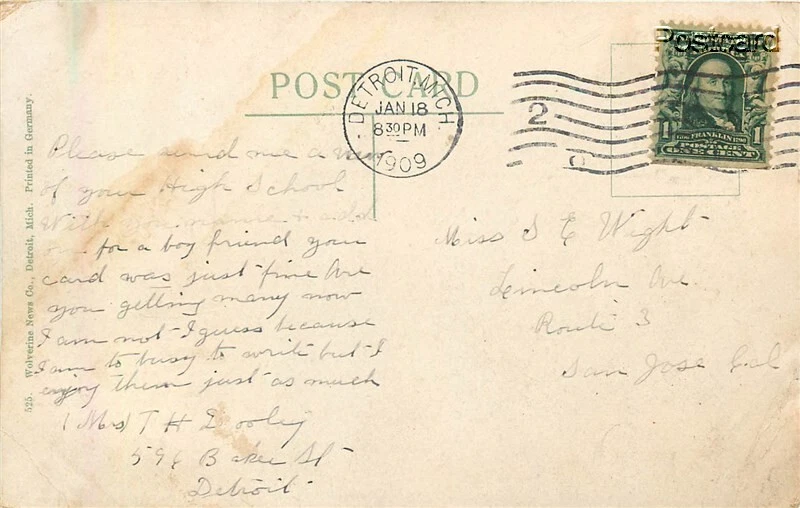 Postcard
POST CARD
DETROIT, MICH.
JAN 18
8 30 PM
1909
2
1 FRANKLIN 1
POSTAGE
ONE CENT
525. Wolverine News Co., Detroit, Mich. Printed in Germany.
Please send me a view
of your High School
With you name + add
on for a boy friend your
card was just fine Are
you getting many now
I am not I guess because
I am to busy to write but I
enjoy them just as much
(Mrs) T H Dooley
Baker St
Detroit
Miss I E Wight
Lincoln Ave.
Route 3
San Jose Cal